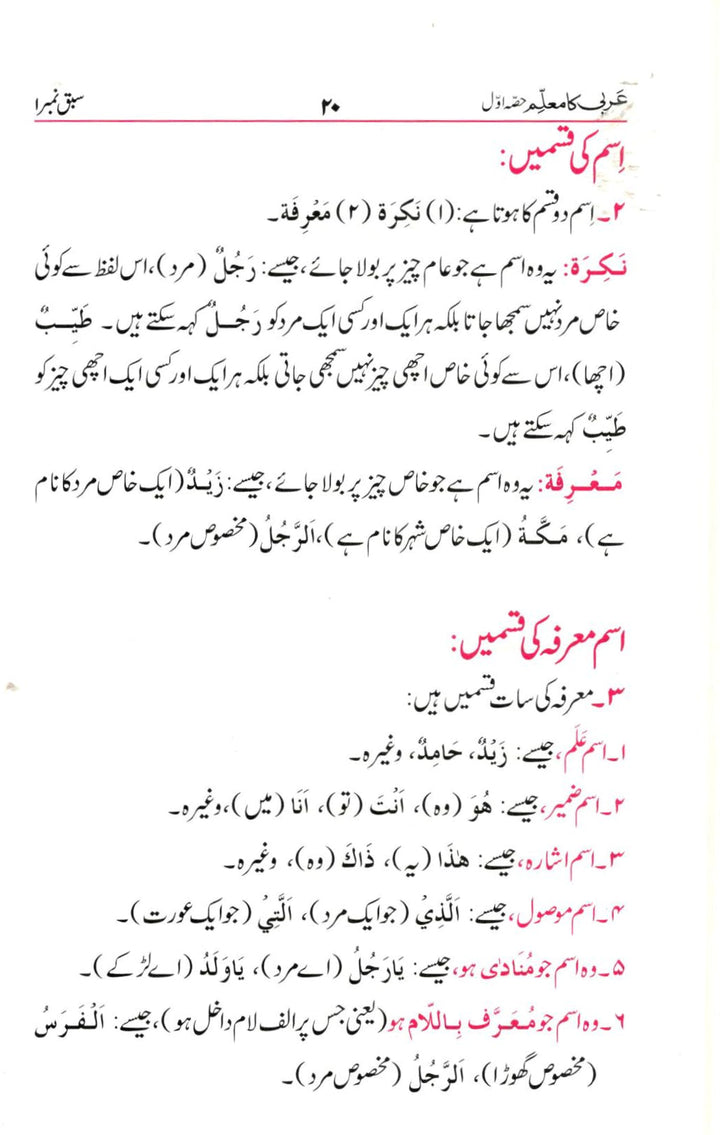 عَربی کا معلّم حصّہ اوّل ۲۰ سبق نمبر۱
اِسم کی قسمیں:
۲۔ اِسم دو قسم کا ہوتا ہے: (۱) نَكِرَة (۲) مَعْرِفَة۔
نَكِرَة: یہ وہ اسم ہے جو عام چیز پر بولا جائے، جیسے: رَجُلٌ (مرد)، اس لفظ سے کوئی
خاص مرد نہیں سمجھا جاتا بلکہ ہر ایک اور کسی ایک مرد کو رَجُلٌ کہہ سکتے ہیں۔ طَيِّبٌ
(اچھا)، اس سے کوئی خاص اچھی چیز نہیں سمجھی جاتی بلکہ ہر ایک اور کسی ایک اچھی چیز کو
طَيِّبٌ کہہ سکتے ہیں۔
مَعْرِفَة: یہ وہ اسم ہے جو خاص چیز پر بولا جائے، جیسے: زَيْدٌ (ایک خاص مرد کا نام
ہے)، مَكَّةُ (ایک خاص شہر کا نام ہے)، اَلرَّجُلُ (مخصوص مرد)۔
اسم معرفہ کی قسمیں:
۳۔ معرفہ کی سات قسمیں ہیں:
۱۔ اسم عَلَم، جیسے: زَيْدٌ، حَامِدٌ، وغیرہ۔
۲۔ اسم ضمیر، جیسے: هُوَ (وہ)، اَنْتَ (تو)، اَنَا (میں)، وغیرہ۔
۳۔ اسم اشارہ، جیسے: هٰذَا (یہ)، ذَاكَ (وہ)، وغیرہ۔
۴۔ اسم موصول، جیسے: اَلَّذِيْ (جو ایک مرد)، اَلَّتِيْ (جو ایک عورت)۔
۵۔ وہ اسم جو مُنَادٰی ہو، جیسے: يَارَجُلُ (اے مرد)، يَاوَلَدُ (اے لڑکے)۔
۶۔ وہ اسم جو مُعَرَّف بِاللَّام ہو (یعنی جس پر الف لام داخل ہو)، جیسے: اَلْفَرَسُ
(مخصوص گھوڑا)، اَلرَّجُلُ (مخصوص مرد)۔